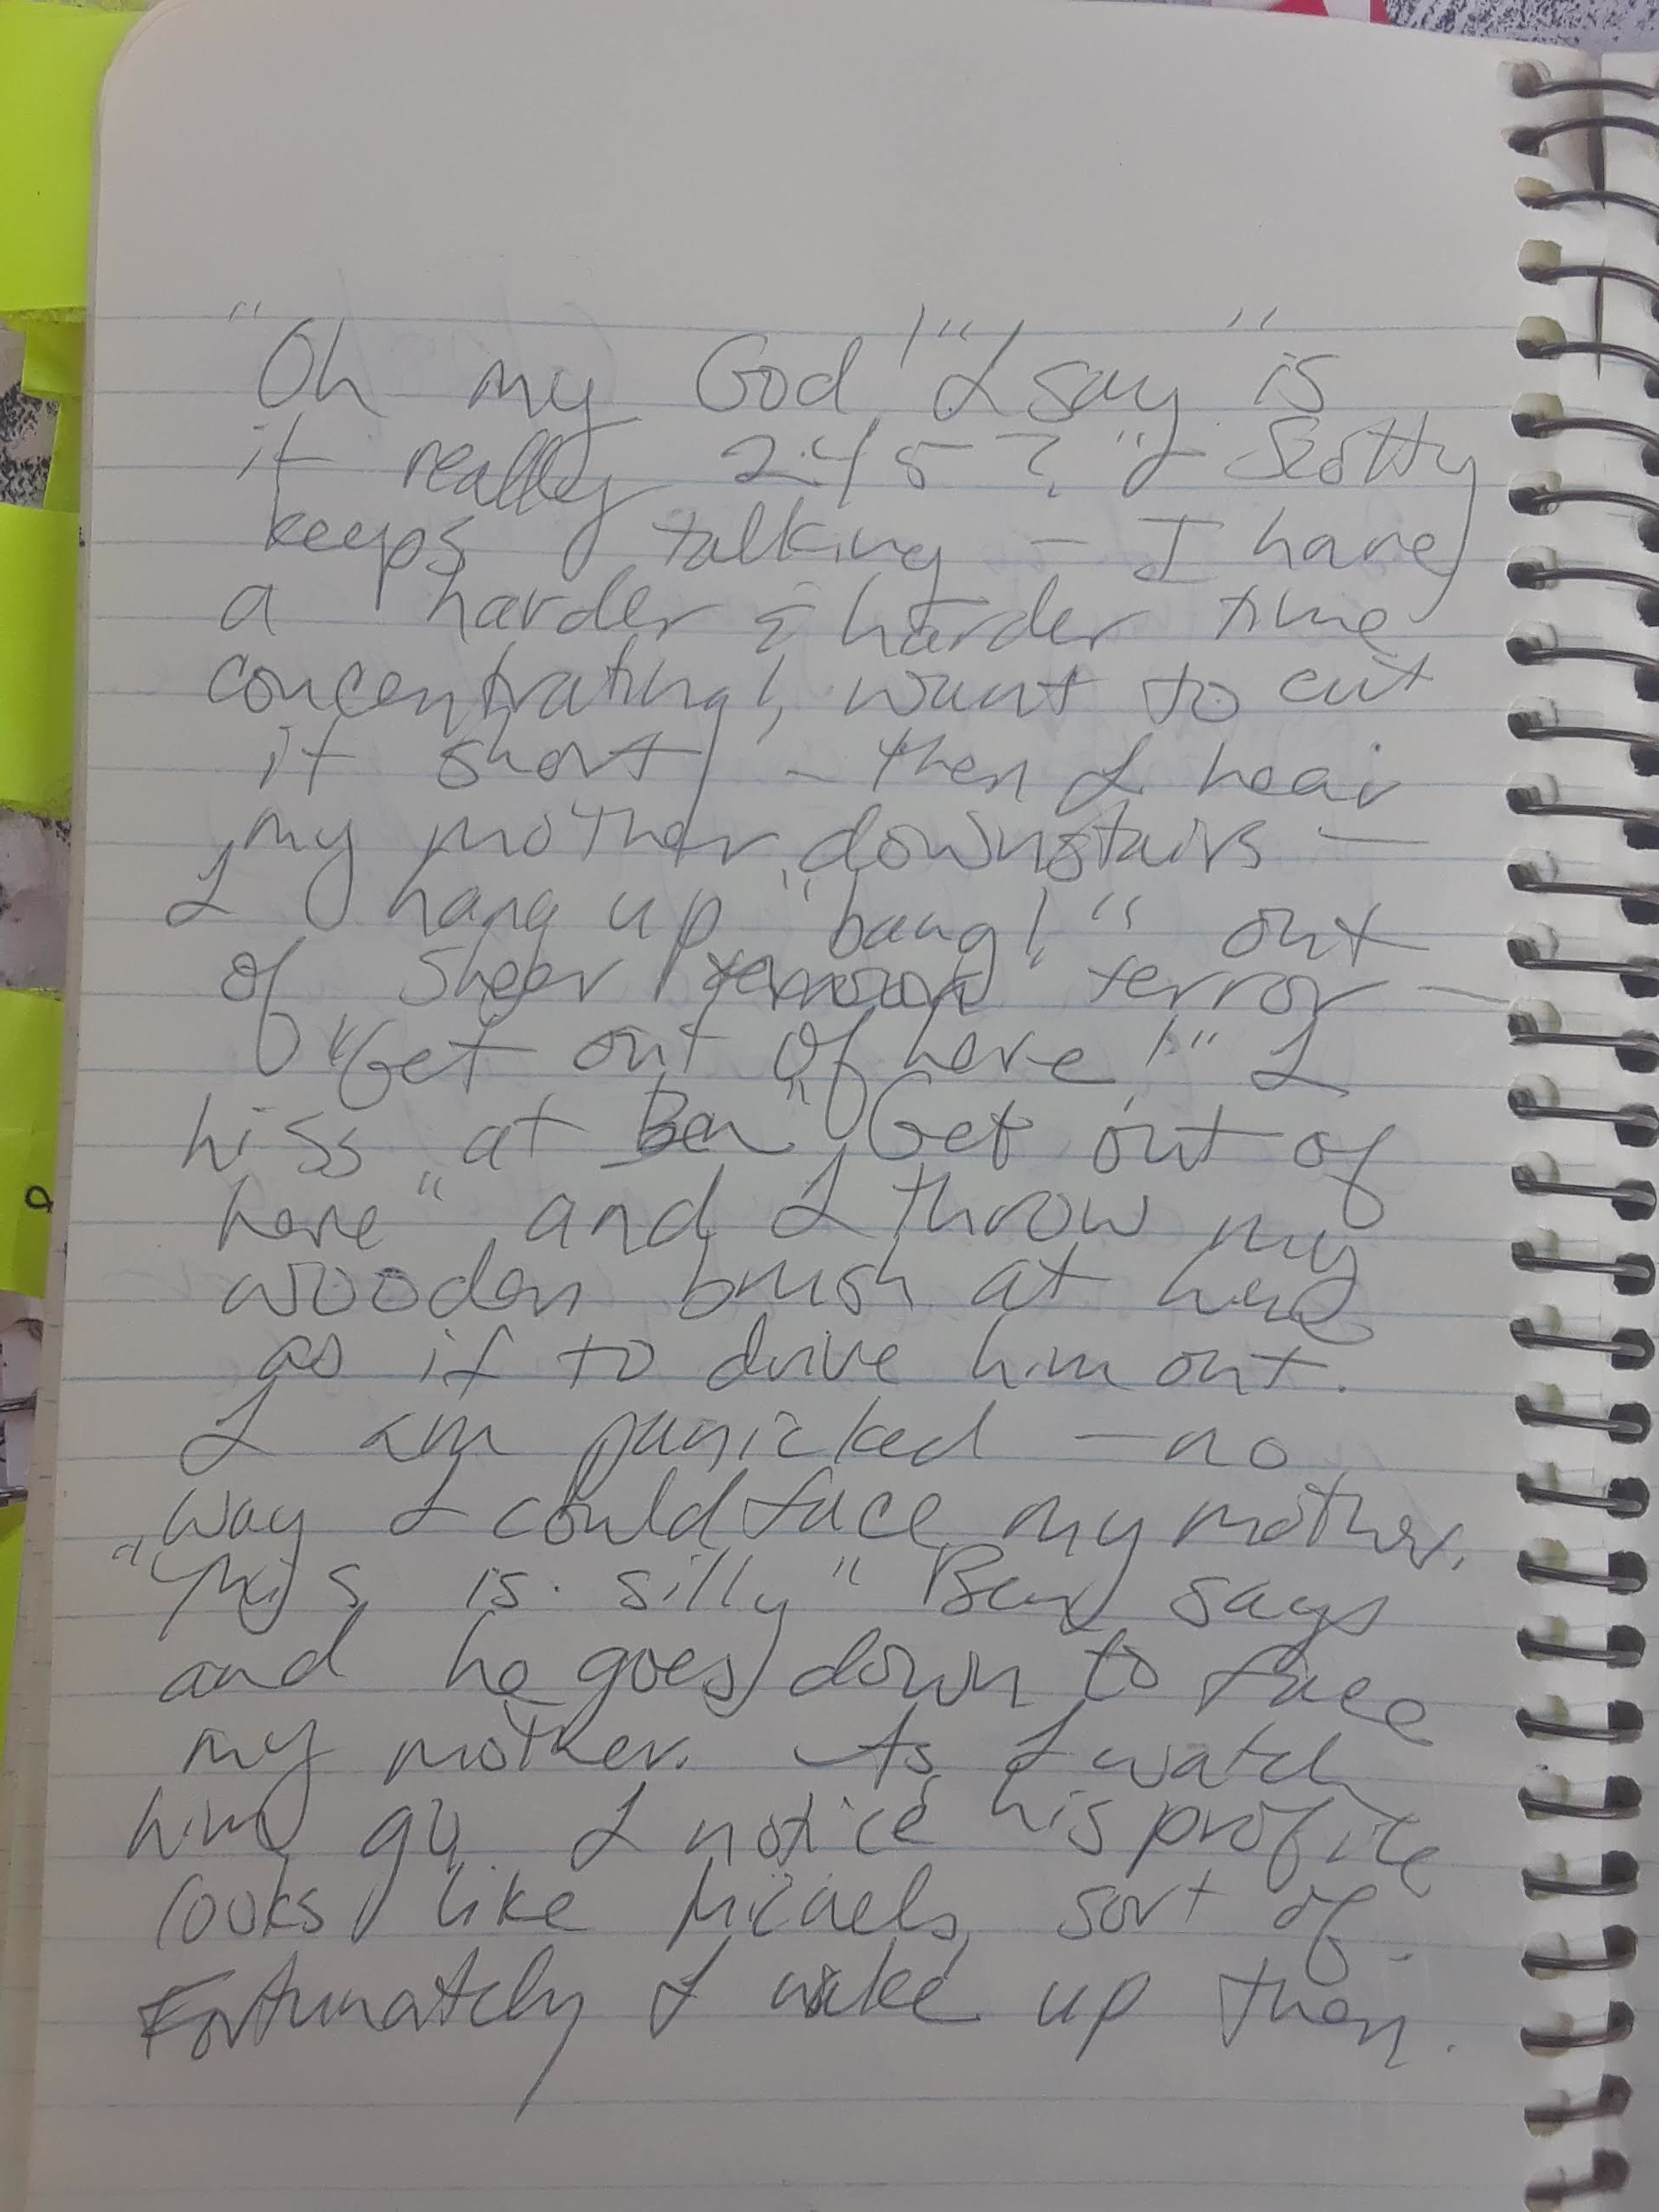 "Oh my God!" I say "is
it really 2:45?" I Scotty
keeps talking - I have
a harder & harder time
concentrating, want to cut
it short - then I hear
my mother downstairs -
I hang up "bang!" out
of sheer terror -
"Get out of here!" I
hiss at Ben "Get out of
here" and I throw my
wooden brush at him
as if to drive him out.
I am panicked - no
way I could face my mother.
"This is silly" Ben says
and he goes down to face
my mother. As I watch
him go, I notice his profile
looks like Micaels, sort of.
Fortunately I wake up then.